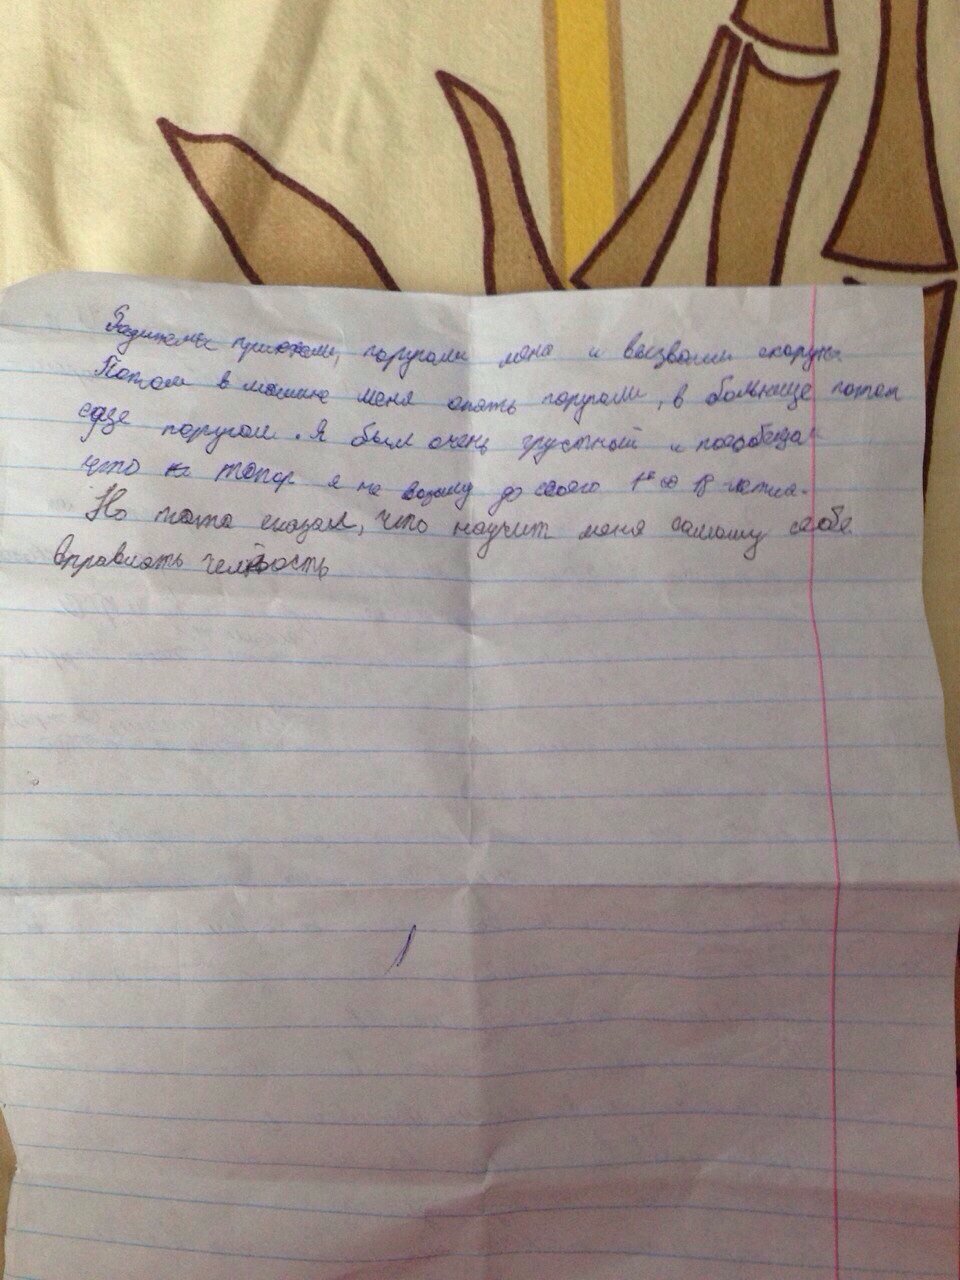 Родители приехали, поругали меня и вызвали скорую.
Потом в машине меня опять поругали, в больнице потом
поругали. Я был очень грустный и пообещал
что топор я не возьму до своего 18 летия.
Но папа сказал, что научит меня самому себе
вправлять челюсть